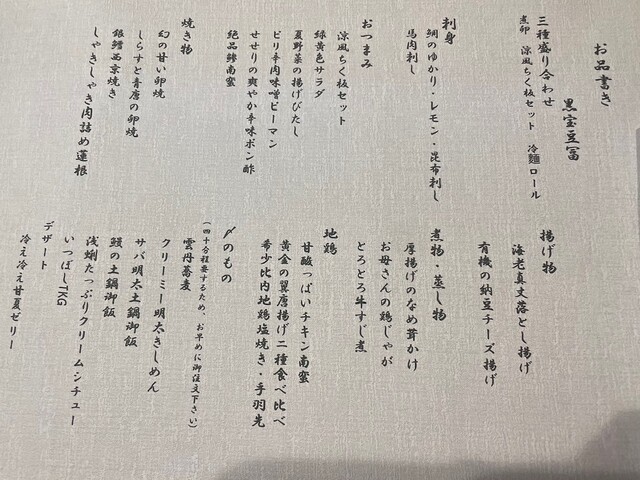 お品書き
黒宝豆冨
三種盛り合わせ
煮卯 涼風ちく板セット 冷麺ロール
刺身
鯛のゆかり・レモン・昆布刺し
馬肉刺し
おつまみ
涼風ちく板セット
緑黄色サラダ
夏野菜の揚げびたし
ピリ辛肉味噌ピーマン
せせりの爽やか辛味ポン酢
絶品鯵南蛮
焼き物
幻の甘い卯焼
しらすと青唐の卯焼
銀鱈西京焼き
しゃきしゃき肉詰め蓮根
揚げ物
海老真丈落とし揚げ
有機の納豆チーズ揚げ
煮物・蒸し物
厚揚げのなめ茸かけ
お母さんの鶏じゃが
とろとろ牛すじ煮
地鶏
甘酸っぱいチキン南蛮
黄金の翼唐揚げ二種食べ比べ
希少比内地鶏塩焼き・手羽先
〆のもの
(四十分程要するため、お早めに御注文下さい)
雲丹蕎麦
クリーミー明太きしめん
サバ明太土鍋御飯
鰻の土鍋御飯
浅蜊たっぷりクリームシチュー
いつぼしTKG
デザート
冷え冷え甘夏ゼリー